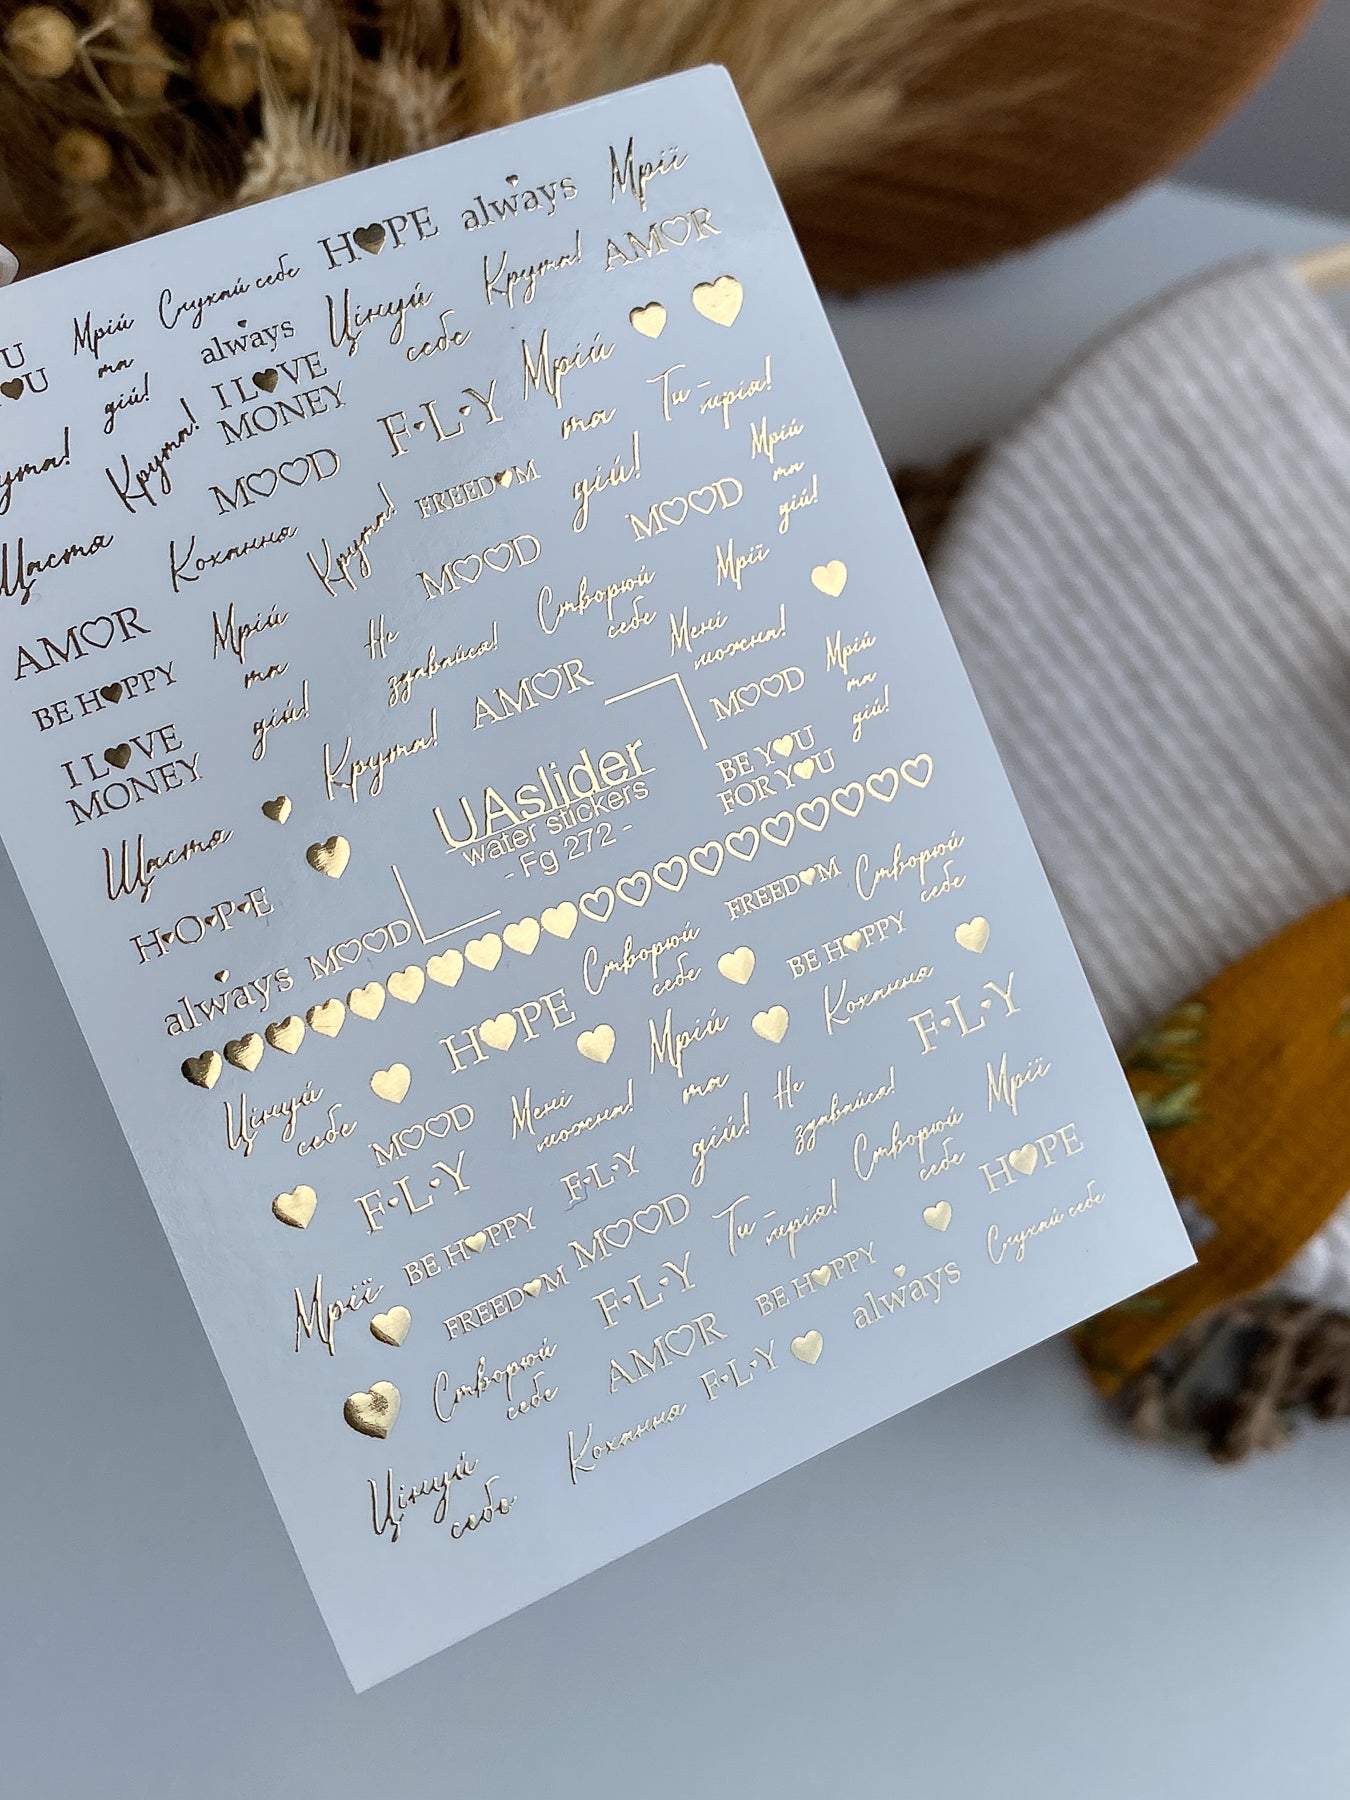 HOPE always Мрії
Мрій та дій! Слухай себе
always Цінуй себе Крута! AMOR
U
YOU
I LOVE
MONEY
Крута! F·L·Y Мрій та дій!
Ти – мрія!
MOOD FREEDOM
Щастя Кохання Крута! MOOD MOOD Мрій та дій!
AMOR Мрій та дій! Не здавайся! Створюй себе Мрії
BE HAPPY AMOR Мені можна!
I LOVE
MONEY
Крута! MOOD Мрій та дій!
UAslider
water stickers
- Fg 272 -
BE YOU
FOR YOU
Щастя
H·O·P·E
always MOOD
FREEDOM Створюй себе
Цінуй себе HOPE Створюй себе BE HAPPY
MOOD Мені можна! Мрій та дій! Кохання
F·L·Y F·L·Y Не здавайся! F·L·Y
Мрії BE HAPPY MOOD Створюй себе Мрії
FREEDOM F·L·Y Ти – мрія! HOPE
Створюй себе AMOR BE HAPPY always Слухай себе
Цінуй себе Кохання F·L·Y